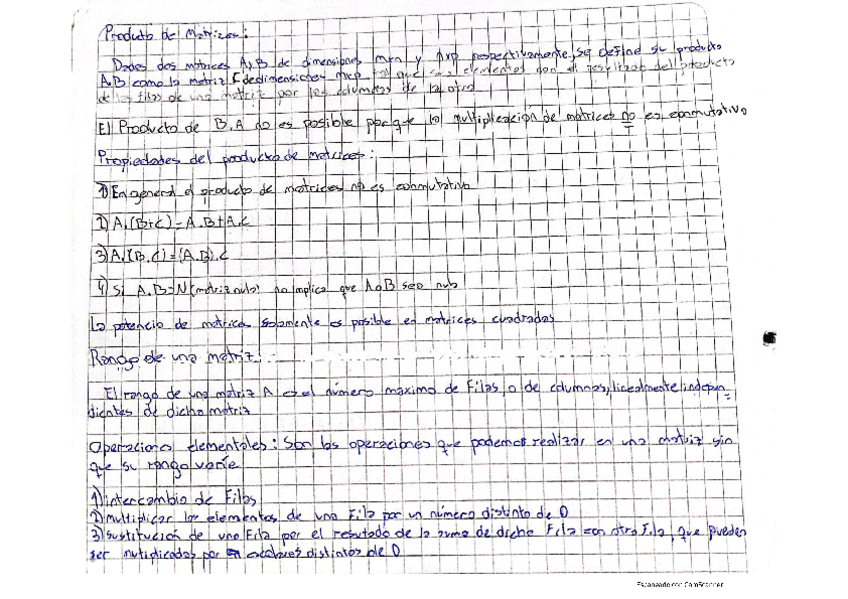 Producto de Matrices:
Dadas dos matrices A,B de dimensiones mxn y nxp respectivamente, se define su producto
A.B como la matriz C de dimensiones mxp tal que sus elementos son el resultado del producto
de las filas de una matriz por las columnas de la otra
El Producto de B.A no es posible porque la multiplicacion de matrices no es conmutativa
Propiedades del producto de matrices:
1) En general el producto de matrices no es conmutativo
2) A.(B+C)=A.B+A.C
3) A.(B.C)=(A.B).C
4) Si A.B=N (matriz nula) no implica que A o B sean nula
La potencia de matrices solamente es posible en matrices cuadradas
Rango de una matriz:
El rango de una matriz A es el número máximo de filas, o de columnas, linealmente indepen
dientes de dicha matriz
Operaciones elementales: Son las operaciones que podemos realizar en una matriz sin
que su rango varíe
1) intercambio de Filas
2) multiplicar los elementos de una Fila por un número distinto de 0
3) sustitución de una Fila por el resutado de la suma de dicha Fila con otra Fila, que pueden
ser mutiplicadas por escalares distintos de 0
Escaneado con CamScanner